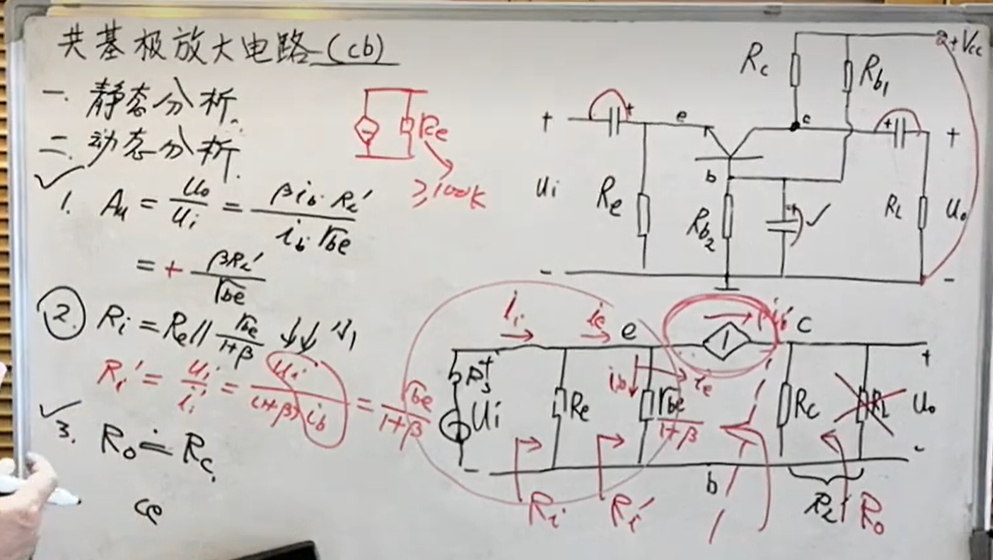 共基极放大电路(cb)
一. 静态分析.
二. 动态分析.
1. Au = uo/ui = βib·RL'/ib·rbe
= + βRL'/rbe
2. Ri = Re // rbe/1+β ↓↓ 小
Ri' = ui/i' = ui/(1+β)ib = rbe/1+β
3. Ro ≐ Rc.
ce
Rce
≥100k
Rc
Rb1
+Vcc
+
e
c
+
+
+
ui
Re
b
Rb2
+
RL
uo
-
-
ii
ie
e
βib
c
Rs
+
ib
ie
+
ui
Re
rbe/1+β
Rc
RL
uo
-
-
Ri
Ri'
b
RL'
Ro